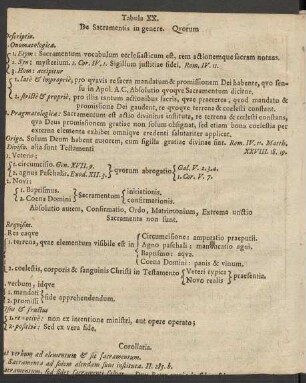 Tabula XX.
De Sacramentis in genere. Quorum
Descriptio.
Onomatologica.
1. Etym: Sacramentum vocabulum ecclesiasticum est, rem actionemque sacram notans.
2. Syn: mysterium. 1. Cor. IV, 1. Sigillum justitiæ fidei, Rom. IV. 11.
3. Hom: accipitur
1. latè & impropriè; pro qvavis re sacra mandatum & promissionem Dei habente, quo sen-
su in Apol. A.C. Absolutio quoque Sacramentum dicitur.
2. strictè & propriè, pro illis tantum actionibus sacris, quæ præterea, quod mandatu &
promissione Dei gaudent, re quoque terrena & coelesti constant.
2. Pragmatologica: Sacramentum est actio divinitus instituta, re terrena & coelesti constans,
qua Deus promissionem gratiæ non solum obsignat, sed etiam bona coelestia per
externo elementa exhibet omnique credenti salutariter applicet.
Origo. Solum Deum habent autorem, cum sigilla gratiæ divinæ sint. Rom. IV. 11. Matth.
XXVIII. 18. 19.
Divisio. alia sunt Testamenti
1. Veteris;
1. circumcisio. Gen. XVII. 9.
2. agnus Paschalis. Exod. XII. 3.
quorum abrogatio
Gal. V. 2. 3. 4.
1. Cor. V. 7.
Novi;
1. Baptismus.
2. Coena Domini
Sacramentum
initiationis.
confirmationis.
Absolutio autem, Confirmatio, Ordo, Matrimonium, Extrema unctio
Sacramenta non sunt.
Requisita.
Rei duæ
1. terrena, quæ elementum visibile est in
Circumcisione: amputatio præputii.
Agno paschali: manducatio agni.
Baptismo: aqva.
Coena Domini: panis & vinum.
2. coelestis, corporis & sanguinis Christi in Testamento
Veteri typica
Novo realis
præsentia.
verbum, idqve
1. mandati
2. promissi
fide apprehendendum.
Usus & fructus
non ex intentione ministri, aut opere operato;
2. positivè: Sed ex vera fide.
Corollaria.
verbum ad elementum & fit sacramentum.
Sacramenta ad fidem alendam sunt instituta.